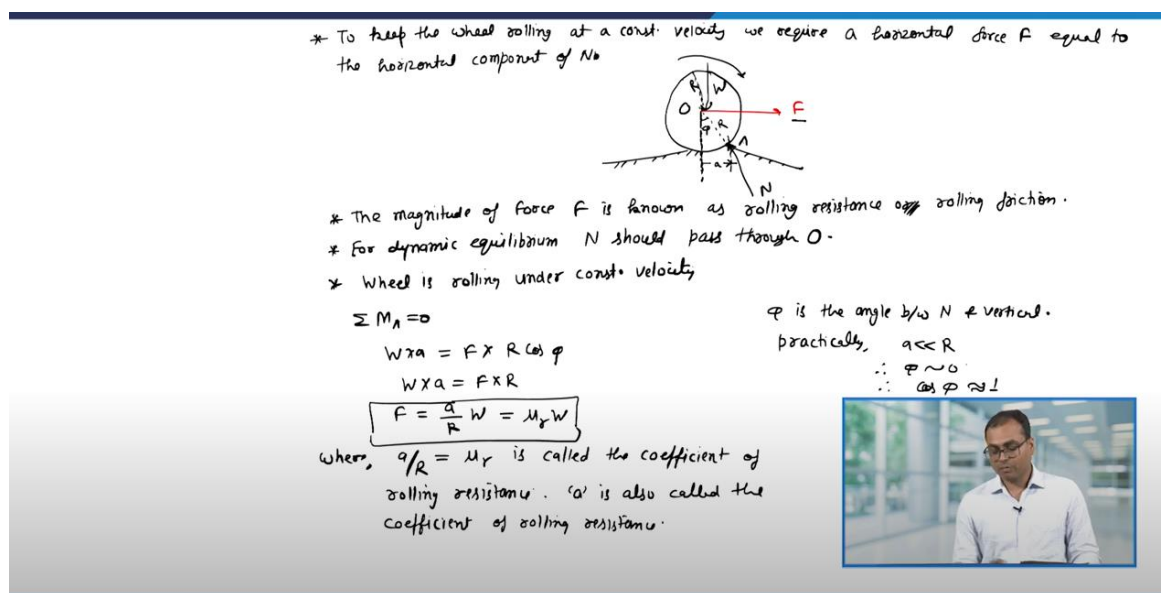 * To keep the wheel rolling at a const. velocity we require a horizontal force F equal to
the horizontal component of N.
R W
O F
φ R A
a
N
* The magnitude of force F is known as rolling resistance or rolling friction.
* For dynamic equilibrium N should pass through O.
* Wheel is rolling under const. velocity
Σ M_A = 0
W × a = F × R cos φ
W × a = F × R
F = a/R W = μ_r W
where, a/R = μ_r is called the coefficient of
rolling resistance. 'a' is also called the
coefficient of rolling resistance.
φ is the angle b/w N & vertical.
practically, a << R
∴ φ ~ 0
∴ cos φ ≈ 1